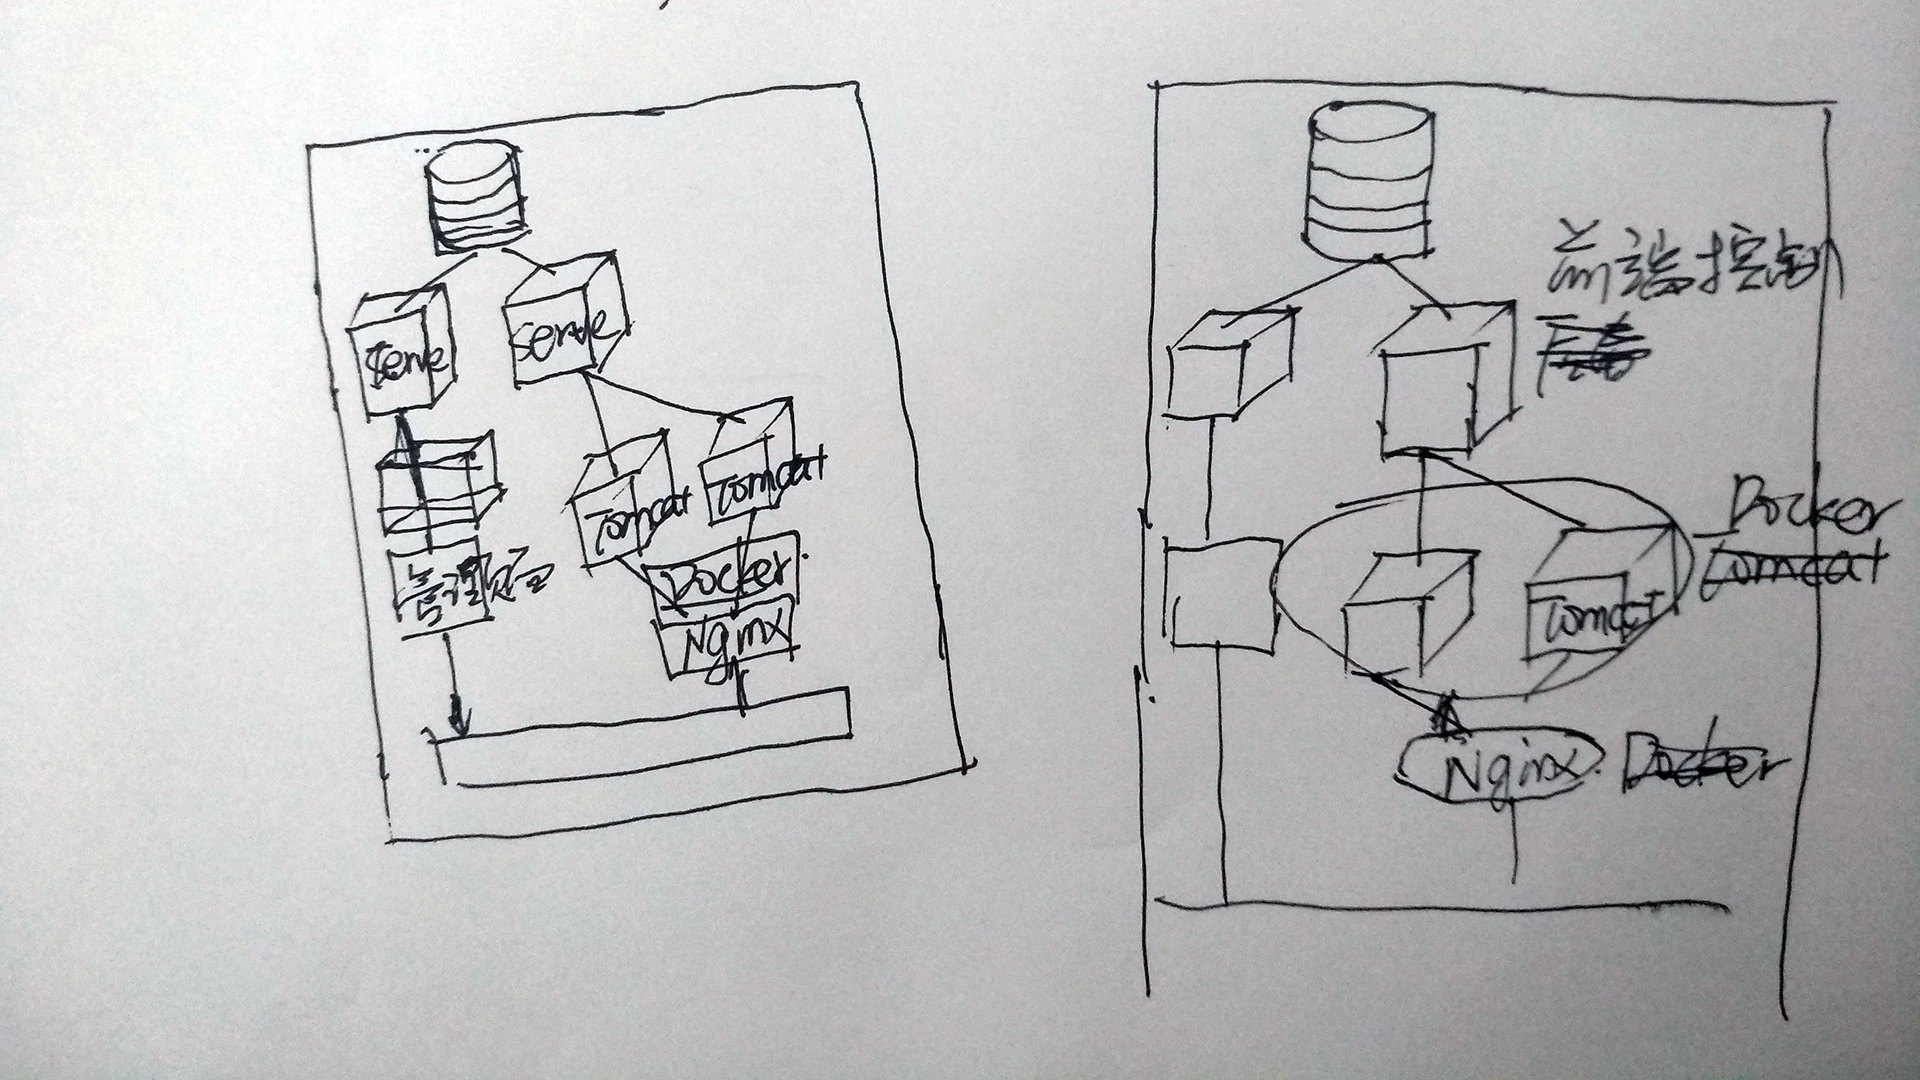 serve
serve
Tomcat
Tomcat
管理
Docker
Nginx
前端控制
Docker
Tomcat
Tomcat
Nginx
Docker